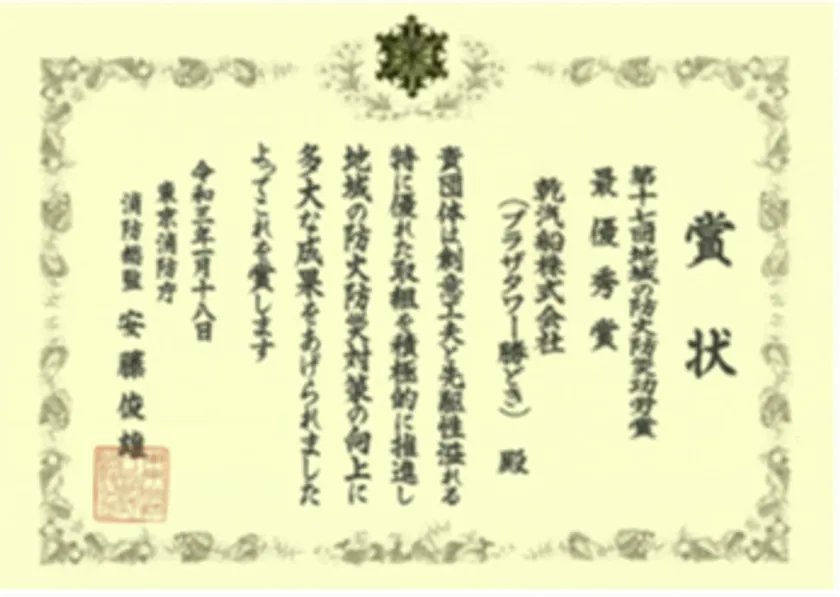 賞状
第十七回地域の防火防災功労賞
最優秀賞
乾汽船株式会社
（プラザタワー勝どき）殿
貴団体は創意工夫と先駆性溢れる
特に優れた取組を積極的に推進し
地域の防火防災対策の向上に
多大な成果をあげられました
よってこれを賞します
令和三年一月十八日
東京消防庁
消防総監 安藤俊雄